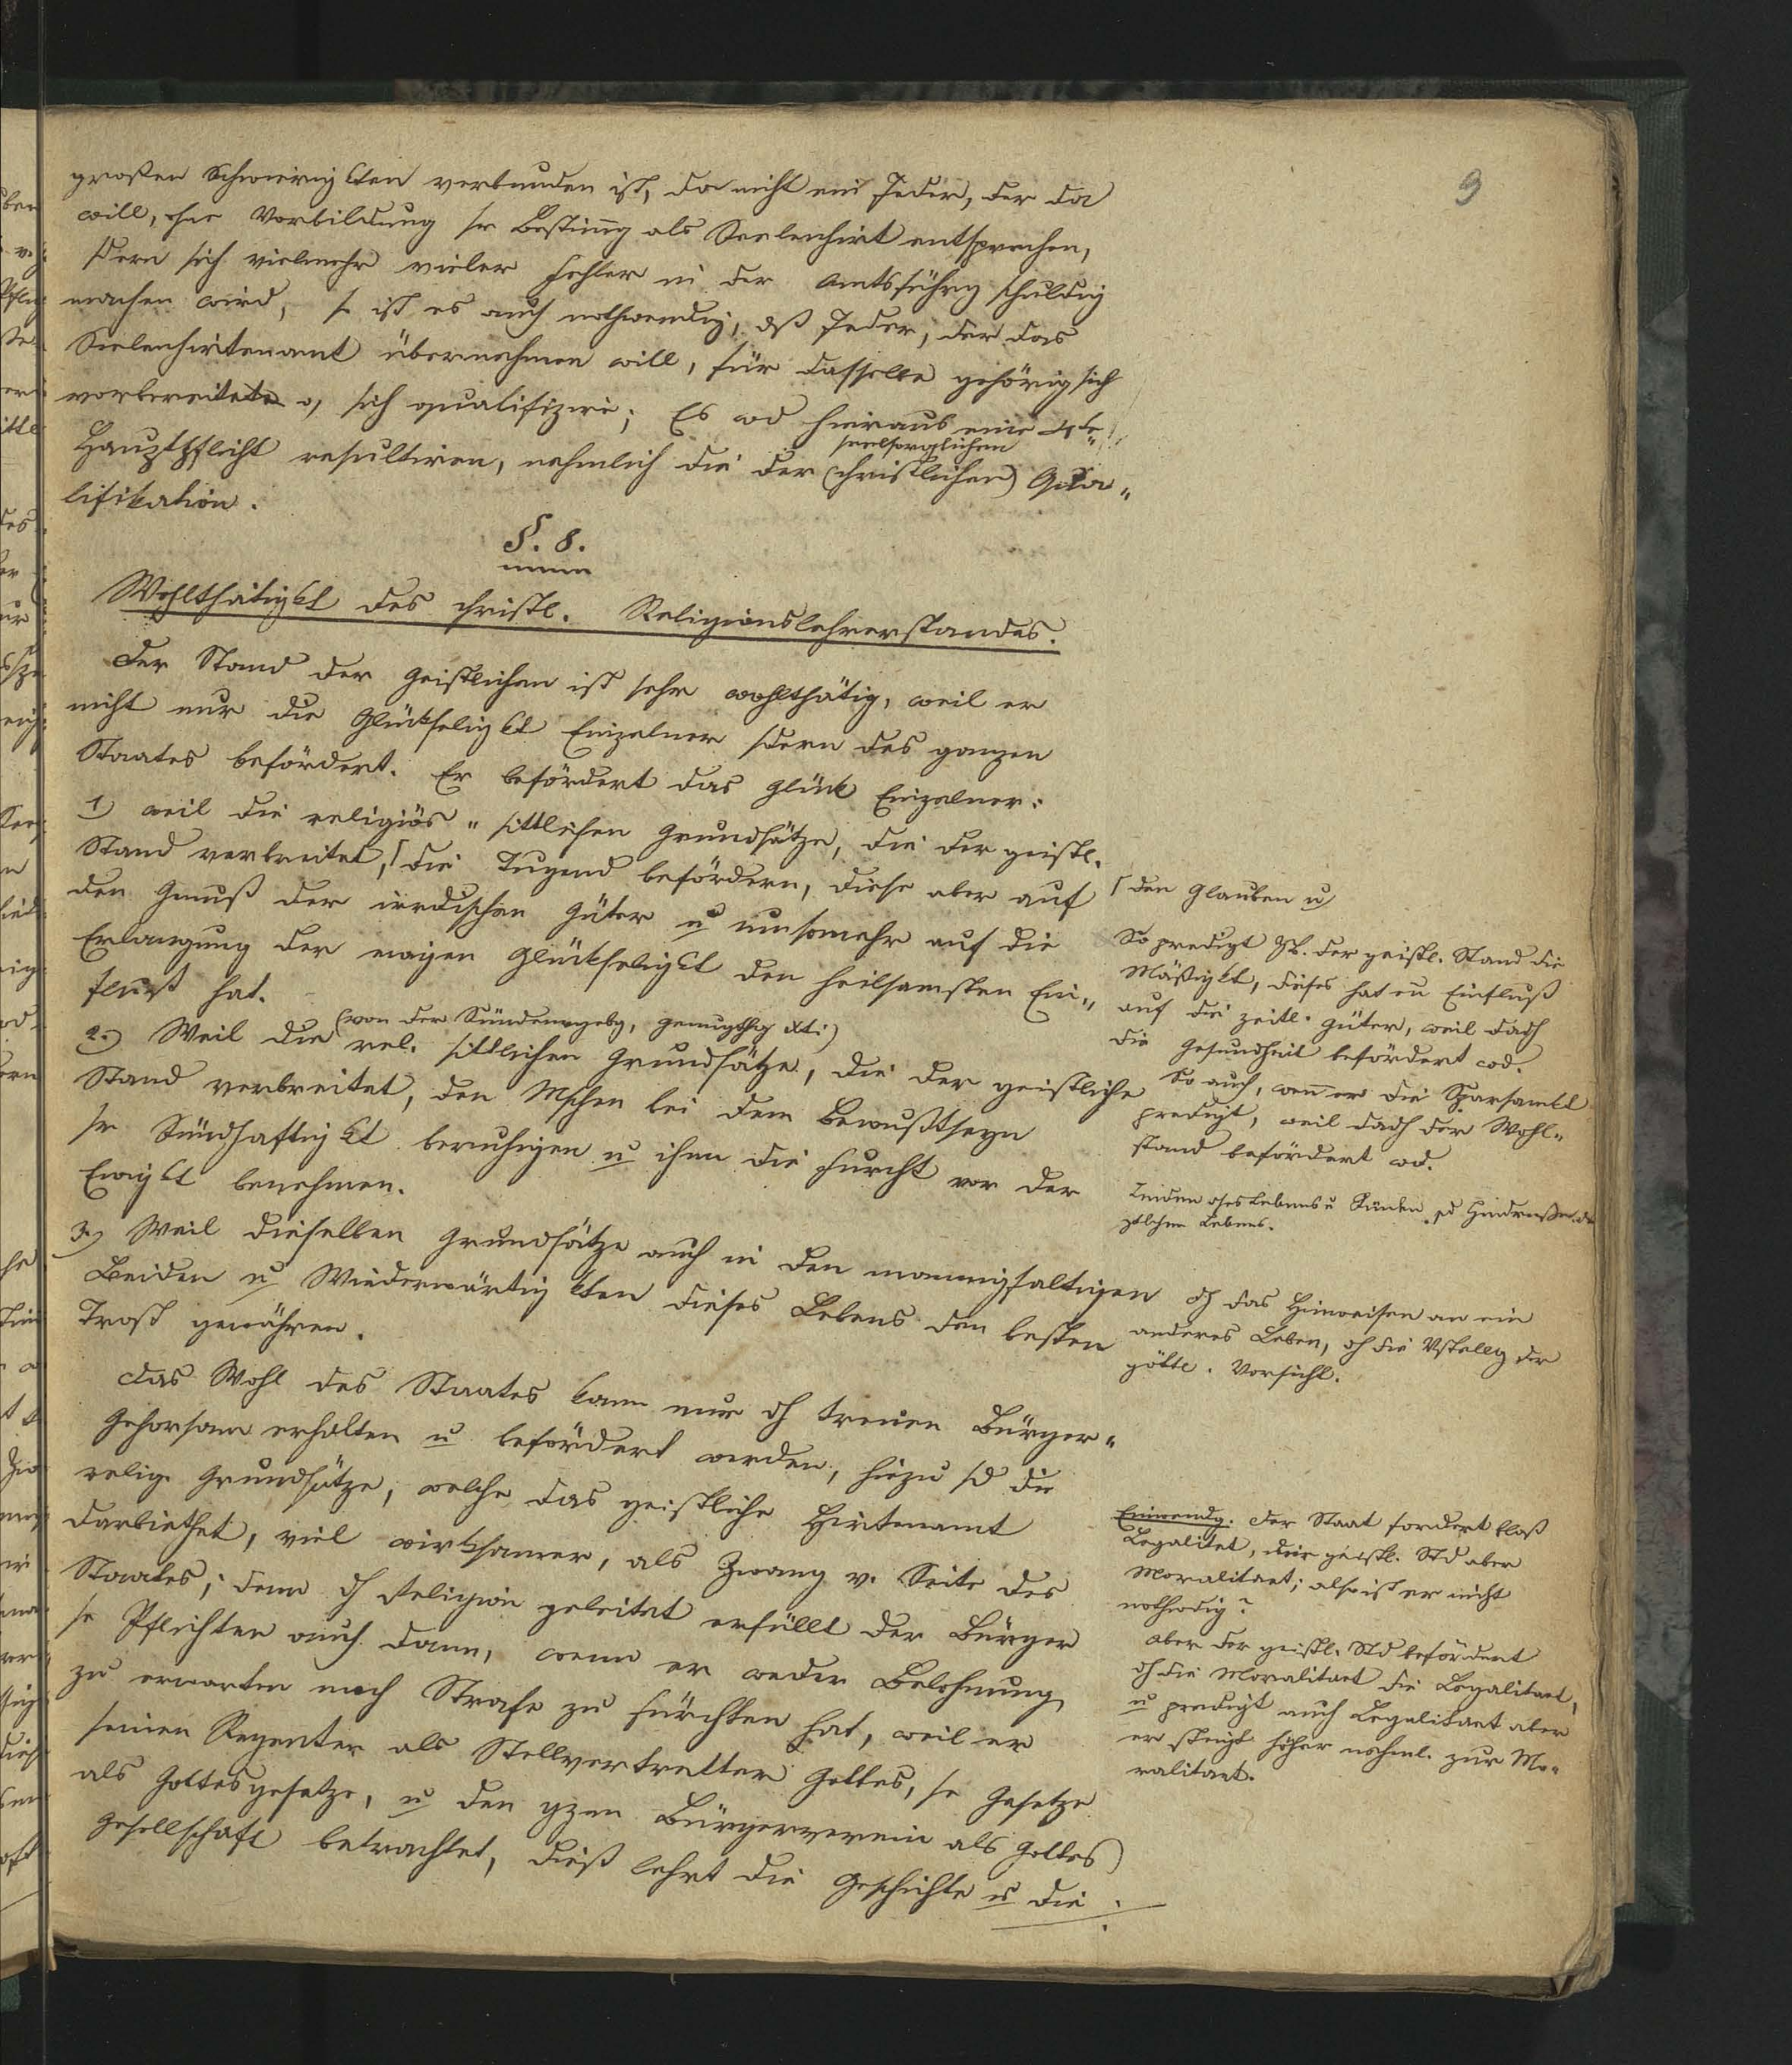 9
großen Schwierigkten verbunden ist, da nicht ein Jeder, der da
will, ohne Vorbildung sr Bestim̄g als Seelenhirt entsprechen,
sdern sich vielmehr vieler Fehler in der Amtsführg schuldig
machen wird, so ist es auch nothwendig, dß Jeder, der das
Seelenhirtenamt übernehmen will, für dasselbe gehörig sich
vorbereitete, sich qualifizire; Es wd hieraus eine 4te
seelsorglichen
Hauptpflicht resultiren, nehmlich die der (christlichen) Qua„
lifikation.
§. 8.
Wohlthätigkt des christl. Religionslehrerstandes.
Der Stand der Geistlichen ist sehr wohlthätig, weil er
nicht nur die Glückseligkt Einzelner sdern des ganzen
Staates befördert. Er befördert das Glück Einzelner:
1) weil die religiös „ sittlichen Grundsätze, die der geistl.
Stand verbreitet, ſ die Tugend befördern, diese aber auf
den Genuß der irrdischen Güter u umsomehr auf die
Erlangung der ewigen Glückseligkt den heilsamsten Ein„
fluß hat.
(von der Sündenvergebg, Genugthg Xti)
2.) Weil die rel. sittlichen Grundsätze, die der geistliche
Stand verbreitet, den Mschen bei dem Bewußtseyn
sr Sündhaftigkt beruhigen u ihm die Furcht vor der
Ewigkt benehmen.
3.) Weil dieselben Grundsätze auch in den mannigfaltigen
Leiden u Wiederwärtigkten dieses Lebens den besten
Trost gewähren.
Das Wohl des Staates kann nur dh treuen Bürger„
Gehorsam erhalten u befördert werden, hiezu sd die
relig. Grundsätze, welche das geistliche Hirtenamt
darbiethet, viel wirksamer, als Zwang v. Seite des
Staates; denn dh Religion geleitet erfüllt der Bürger
se Pflichten auch dann, wenn er weder Belohnung
zu erwarten noch Strafe zu fürchten hat, weil er
seinen Regenten als Stellvertretter Gottes, se Gesetze
als Gottesgesetze, u den gzen Bürgerverein als Gottes
Gesellschaft betrachtet, dieß lehrt die Geschichte u die
ſ den Glauben u
So predigt zB. der geistl. Stand die
Mäßigkt, dieses hat en Einfluß
auf die zeitl. Güter, weil dadh
die Gesundheit befördert wd.
So auch, wen̄ er die Sparsamkt
predigt, weil dadh der Wohl„
stand befördert wd.
Leiden dses Lebens u Sünden sd Hindernisse des
Lebens.
dh das Hinweisen an ein
anderes Leben, dh die Vstellg der
göttl. Vorsicht.
Einwendg. Der Staat fordert bloß
Legalitet, der geistl. Std aber
Moralitaet; also ist er nicht
nothwdig?
Aber der geistl. Std befördert
dh die Moralitaet die Legalitaet,
u predigt auch Legalitaet aber
er steigt höher nehml. zur Mo„
ralitaet.